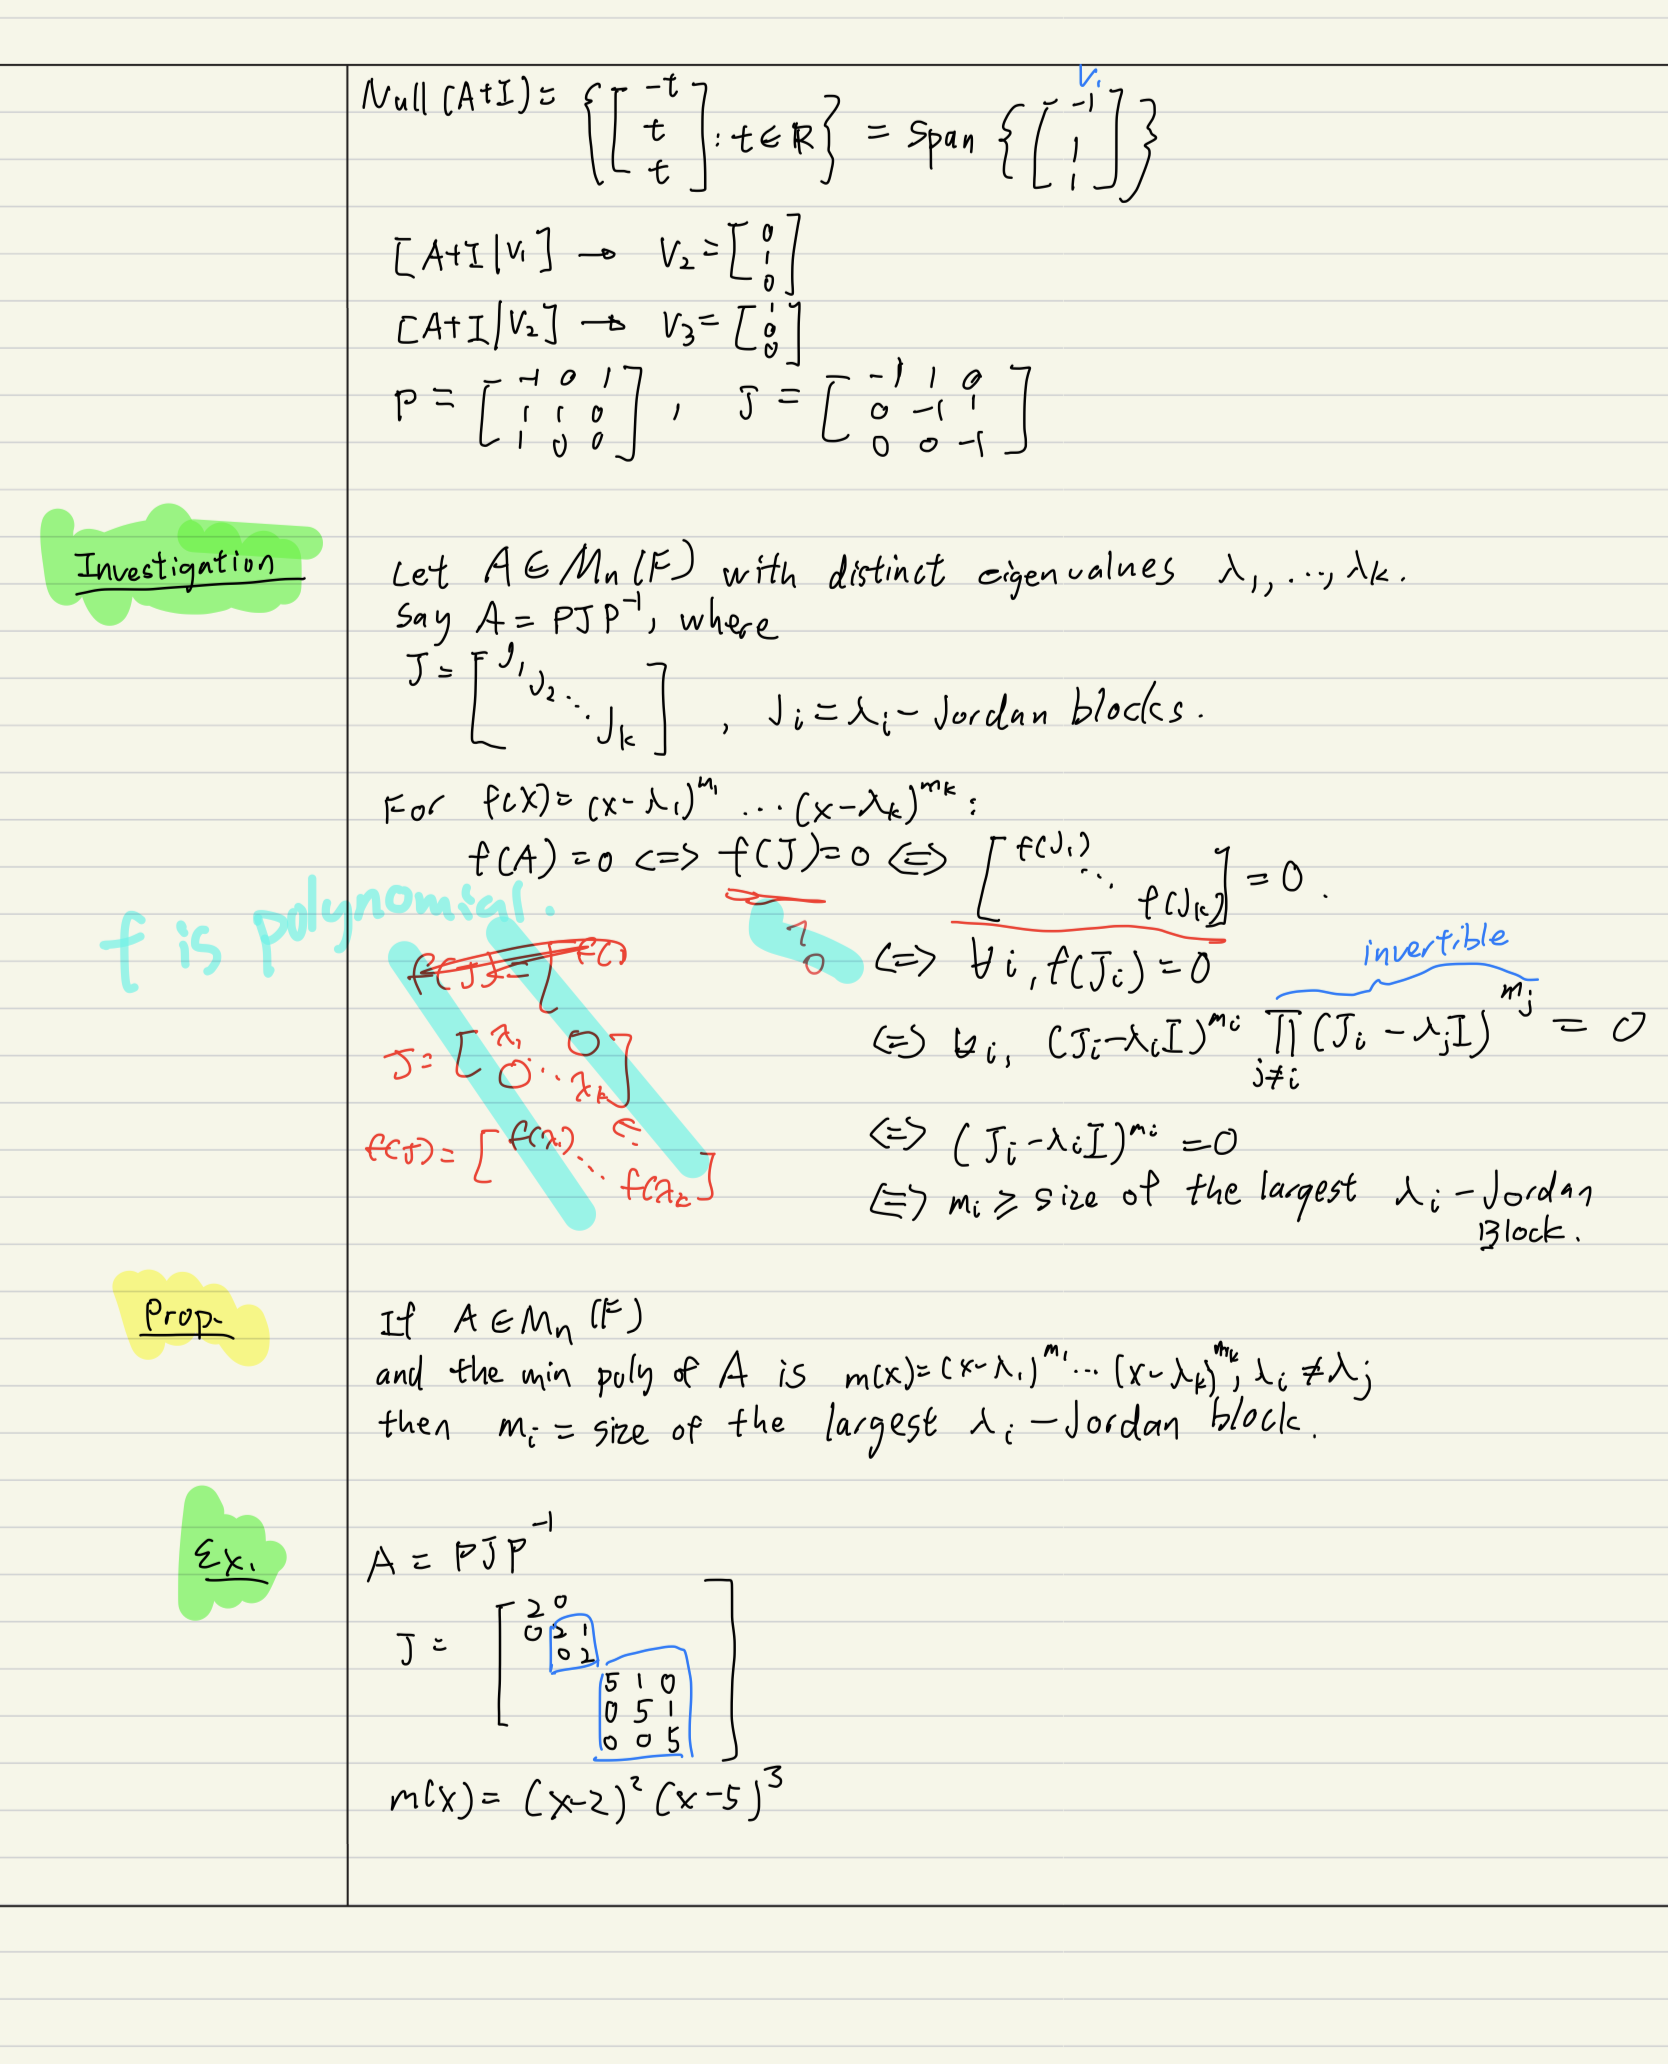 Null (A+I) = { [ -t t t ] : t ∈ ℝ } = Span { [ -1 1 1 ] } V₁
[A+I | V₁] → V₂ = [ 0 1 0 ]
[A+I | V₂] → V₃ = [ 1 0 0 ]
P = [ -1 0 1 ; 1 1 0 ; 1 0 0 ] , J = [ -1 1 0 ; 0 -1 1 ; 0 0 -1 ]
Investigation
Let A ∈ Mₙ(F) with distinct eigenvalues λ₁, ..., λk.
Say A = PJP⁻¹, where
J = [ J₁ J₂ ⋱ Jk ] , Jᵢ = λᵢ - Jordan blocks.
For f(x) = (x-λ₁)^m₁ ... (x-λk)^mk :
f(A) = 0 <=> f(J) = 0 <=> [ f(J₁) ⋱ f(Jk) ] = 0.
f is polynomial.
f(J) = [ f(
<=> ∀i, f(Jᵢ) = 0
invertible
J = [ λ₁ 0 ; 0 ⋱ λk ]
<=> ∀i, (Jᵢ-λᵢI)^mᵢ ∏ j≠i (Jᵢ - λjI)^mj = 0
<=> (Jᵢ-λᵢI)^mᵢ = 0
f(J) = [ f(λ₁) ⋱ f(λk) ]
<=> mᵢ ≥ size of the largest λᵢ - Jordan
Block.
Prop.
If A ∈ Mₙ (F)
and the min poly of A is m(x) = (x-λ₁)^m₁ ... (x-λk)^mk, λᵢ ≠ λj
then mᵢ = size of the largest λᵢ - Jordan block.
Ex.
A = PJP⁻¹
J = [ 2 0
0 2 1
0 2
5 1 0
0 5 1
0 0 5 ]
m(x) = (x-2)² (x-5)³